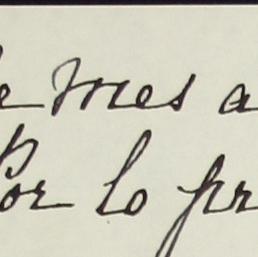 e mes a
Por lo pr